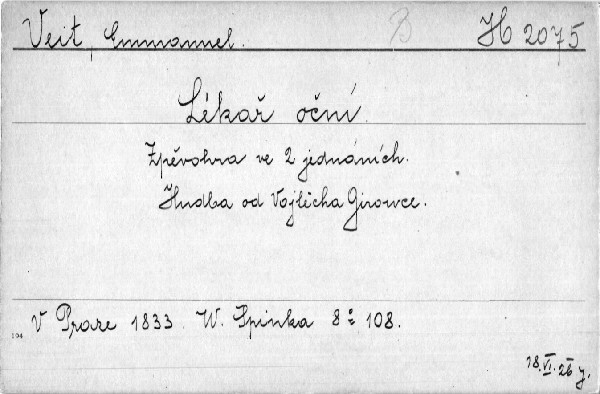 Veit, Emmanuel. B H 2075
Lékař oční.
Zpěvohra ve 2 jednáních.
Hudba od Vojtěcha Girowce.
V Praze 1833. W. Spinka 8° 108.
194
18.VI.26 j.